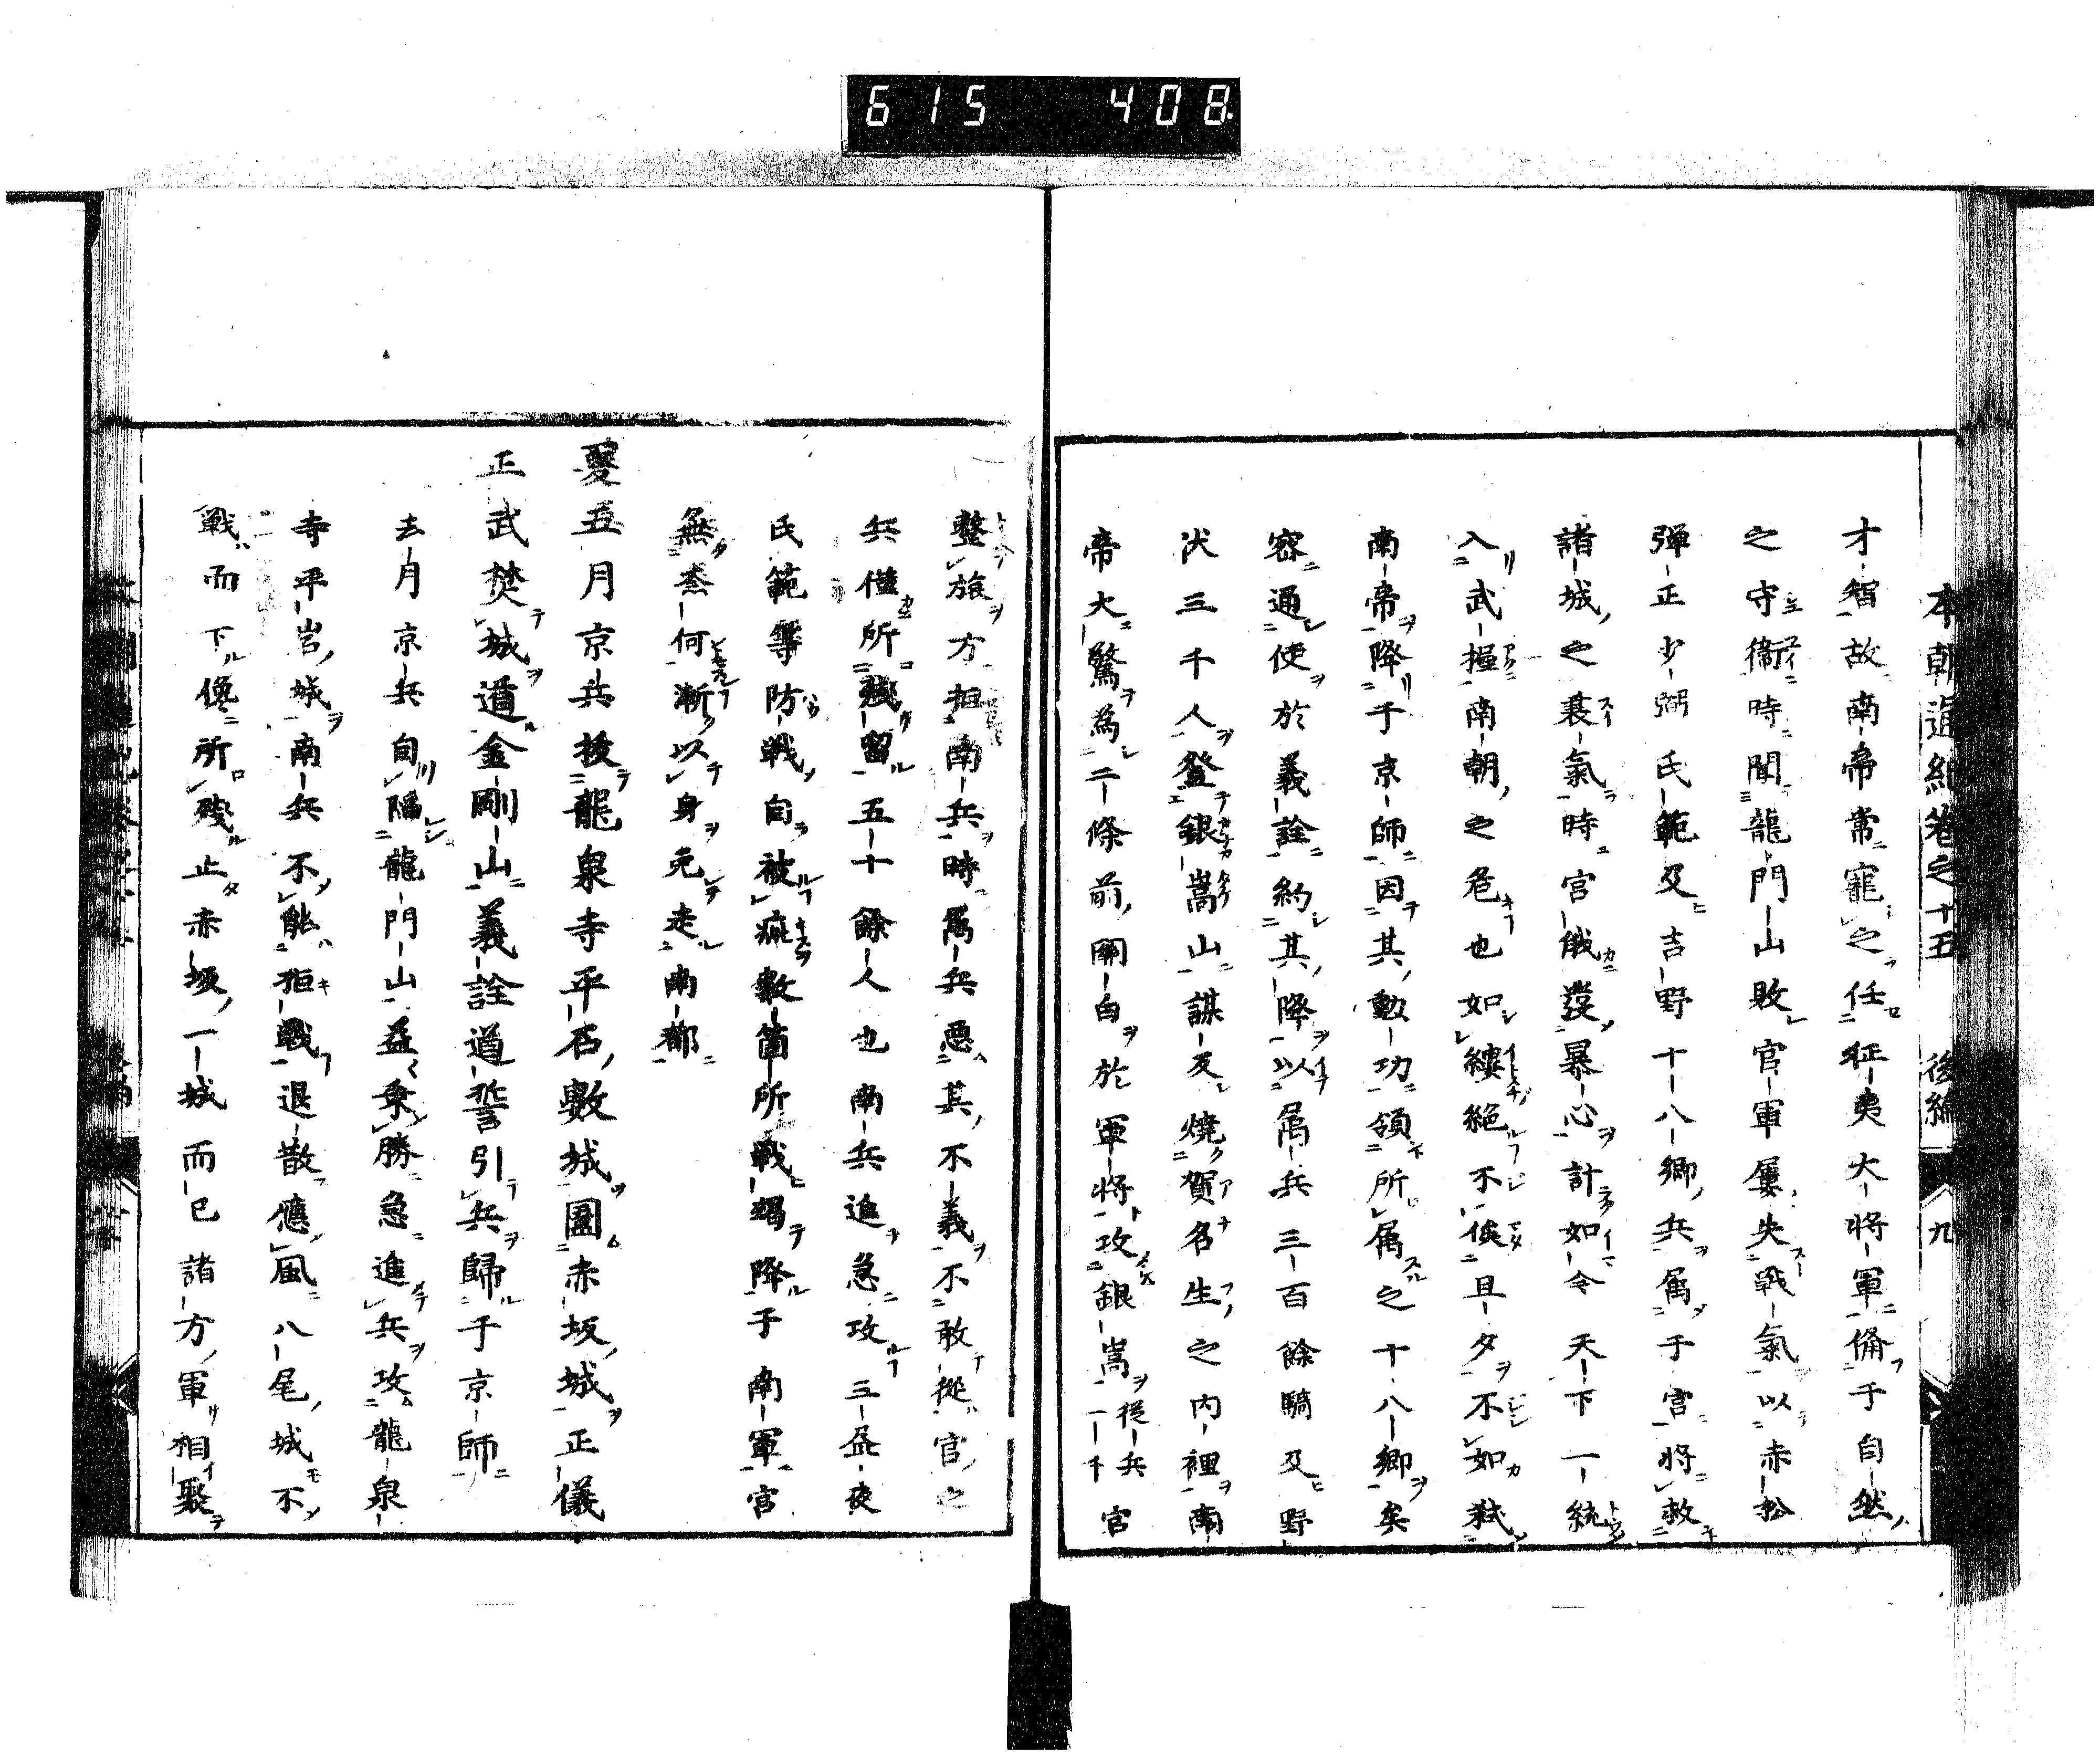 615 408
本朝通紀卷之十五 後編 九
才智故南帝常寵之任征夷大將軍備于自然
之守衛時聞龍門山敗官軍屢失戰氣以赤松
彈正少弼氏範及吉野十八鄉兵属于宮將救
諸城之衰氣時宮俄發暴心計如令天下一統
入武握南朝之危也如縷絕不俟旦夕不如弑
南帝降于京師因其勳功領所属之十八鄉矣
密通使於義詮約其降以属兵三百餘騎及野
伏三千人登銀嵩山謀反燒賀名生之內裡南
帝大驚為二條前關白於軍將攻銀嵩從兵一千官
整旅方拒南兵時属兵惡其不義不敢從官之
兵僅所殘留五十餘人也南兵進急攻三晝夜
氏範等防戰自被疵數箇所戰竭降于南軍官
無奈何漸以身免走南都
夏五月京兵拔龍泉寺平石數城圍赤坂城正儀
正武焚城遁金剛山義詮道誓引兵歸于京師
去月京兵自陷龍門山益乘勝急進兵攻龍泉
寺平岩城南兵不能拒戰退散應風八尾城不
戰而下僅所殘止赤坂一城而已諸方軍相聚